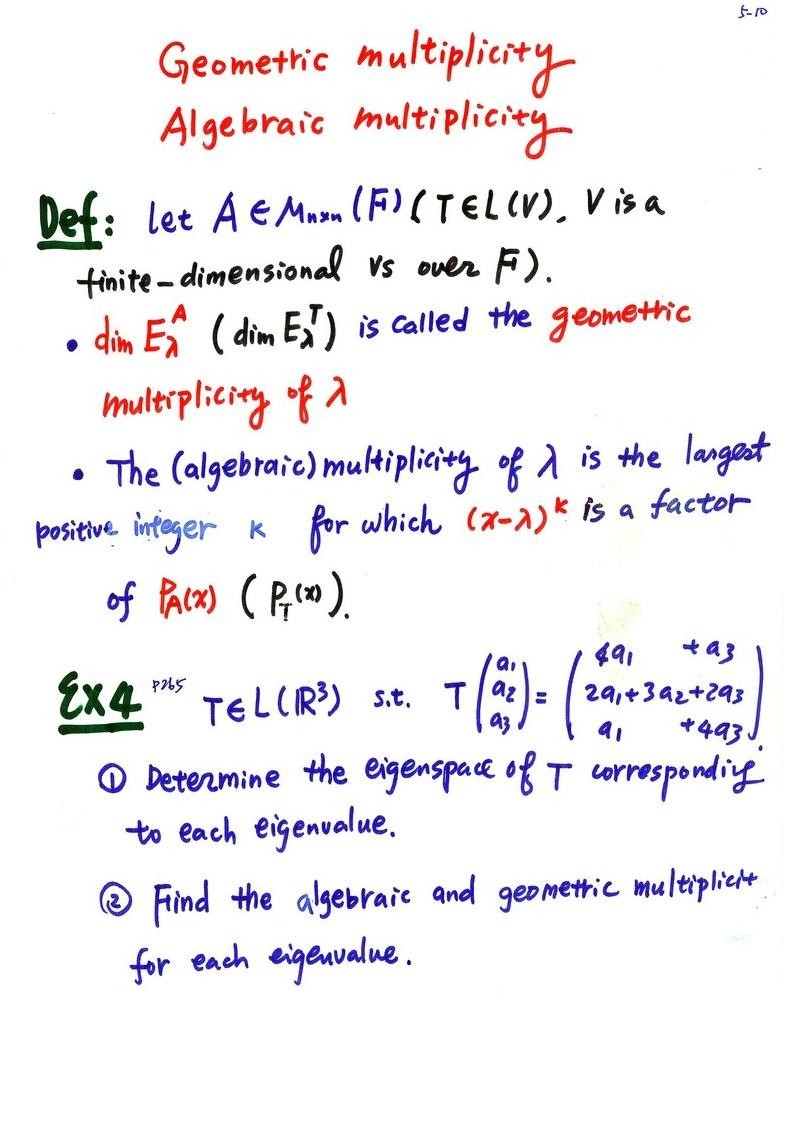 5-10
Geometric multiplicity
Algebraic multiplicity
Def: let A ∈ Mn×n (F) (T ∈ L(V), V is a
finite-dimensional vs over F).
• dim E_λ^A (dim E_λ^T) is called the geometric
multiplicity of λ
• The (algebraic) multiplicity of λ is the largest
positive integer k for which (x-λ)^k is a factor
of P_A(x) (P_T(x)).
Ex4 P265 T ∈ L(ℝ³) s.t. T (a1 a2 a3) = (4a1 + a3
2a1 + 3a2 + 2a3
a1 + 4a3).
① Determine the eigenspace of T correspondig
to each eigenvalue.
② Find the algebraic and geometric multiplicit
for each eigenvalue.